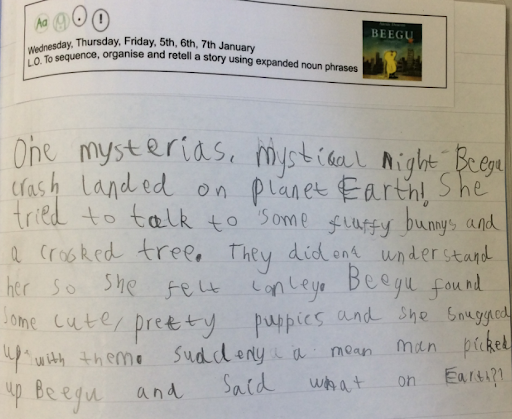 Aa !
Wednesday, Thursday, Friday, 5th, 6th, 7th January
L.O. To sequence, organise and retell a story using expanded noun phrases
BEEGU
One mysterias, mystical night Beegu
crash landed on planet Earth! She
tried to talk to some fluffy bunnys and
a crooked tree. They dident understand
her so she felt lonley. Beegu found
some cute, pretty puppies and she snuggled
up with them. suddenly a mean man picked
up Beegu and said what on Earth?!